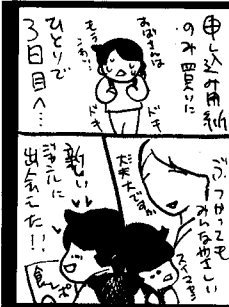 申し込み用紙
のみ買いに
おばさんは
もう
ドキ
ドキ
ひとりで
3日目へ…
ぶつかっても
みんなやさしい
大丈夫ですか
スイマセン
新しい
ジャンルに
出会えた!!